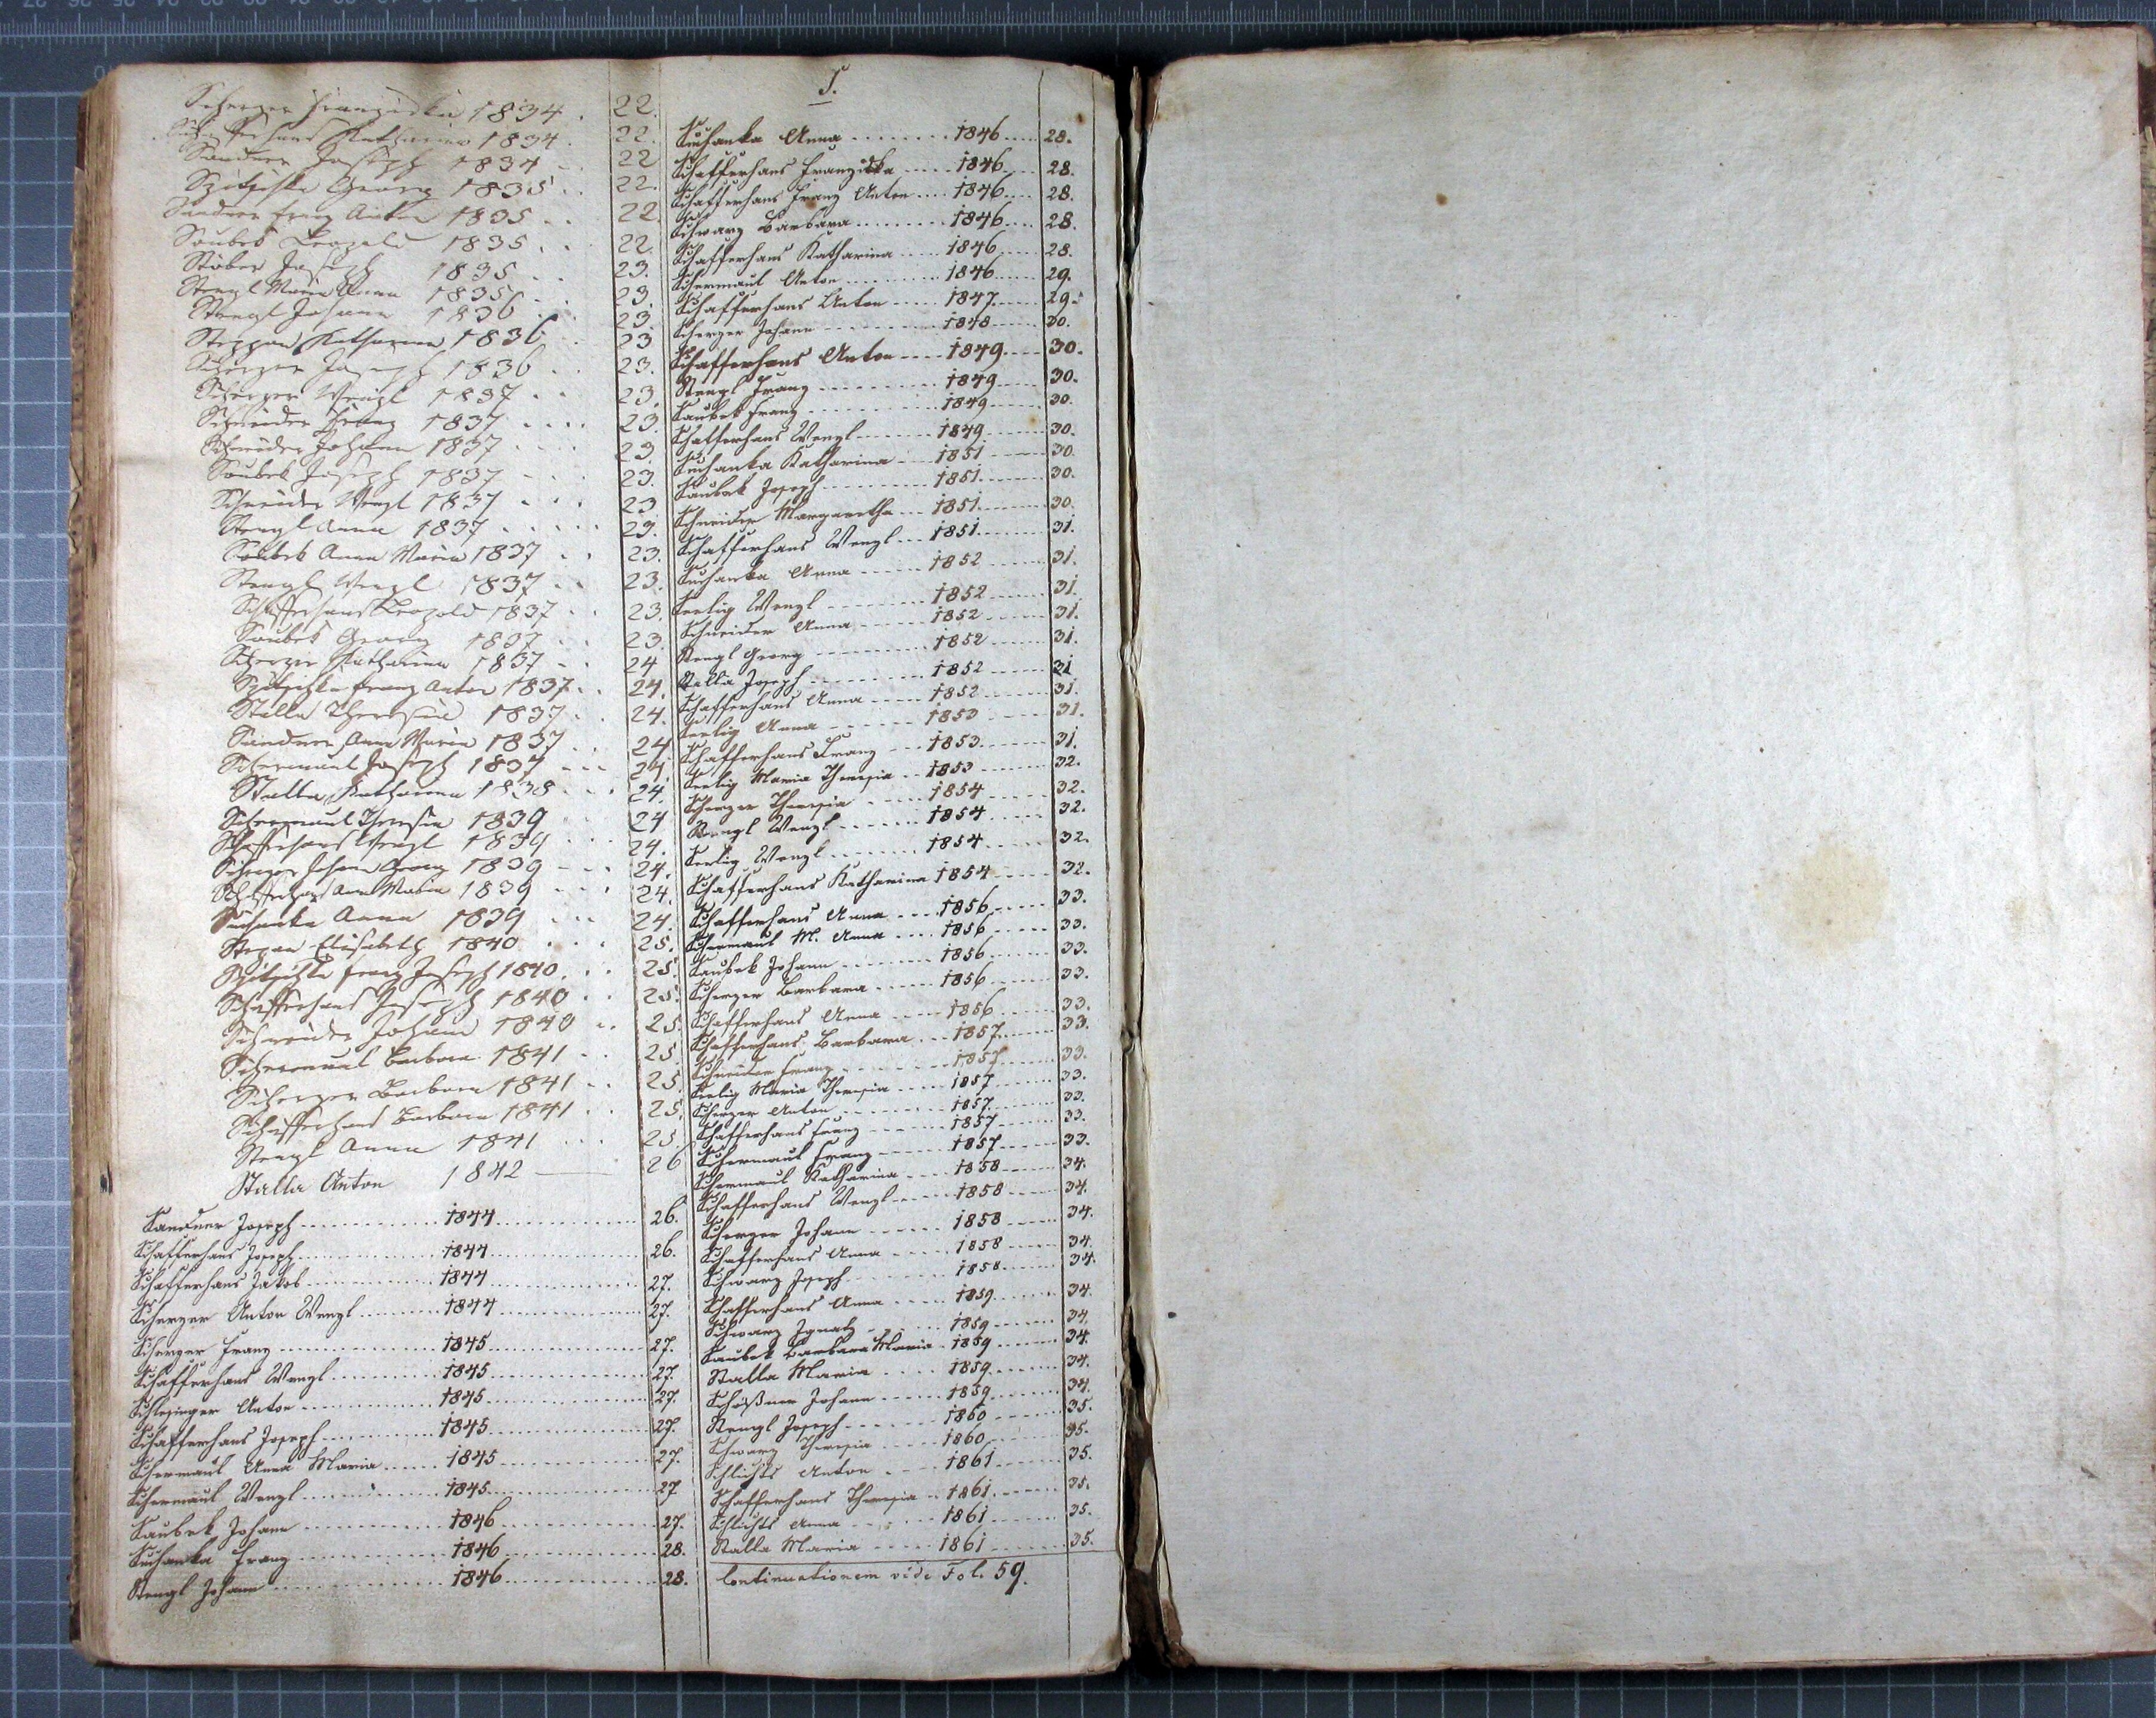 Scherzer Franziska 1834 . 22.
Schafferhans Katharina 1834 . 22.
Sandner Joseph 1834 - 22
Spitschka Georg 1835 . . 22.
Sandner Franz Anton 1835 . . 22.
Soubek Leopold 1835 . . 22
Stöber Joseph 1835 . . 23.
Stengl Maria Anna 1835 . . 23.
Stengl Johann 1836 . . 23.
Steppan Katharina 1836 . . 23
Scherzer Joseph 1836 . . 23.
Scherzer Wenzl 1837 . . 23.
Schneider Franz 1837 . . . . 23.
Schneider Johann 1837 . . . 23.
Soubek Joseph 1837 - . . 23.
Schneider Wenzl 1837 . . . 23
Stengl Anna 1837 . . . . . 23.
Soubek Anna Maria 1837 . . 23.
Stengl Wenzl 1837 . . 23.
Schafferhans Leopold 1837 . . 23.
Soubek Georg 1837 . . 23.
Scherzer Katharina 1837 - . 24
Spitschka Franz Anton 1837 . . 24.
Stalla Theresia 1837 . . 24.
Sandner Anna Maria 1837 . . 24
Schermaul Joseph 1837 - - - 24.
Stalla Katharina 1838 . . . 24.
Schermaul Theresia 1839 . . 24
Schafferhans Wenzl 1839 . . . 24.
Scherzer Johann Georg 1839 - - . 24.
Schafferhans Anna Maria 1839 . . . 24.
Suchanka Anna 1839 . . . 24.
Stepan Elisabeth 1840 . . . 25.
Spitschka Franz Joseph 1840 . . . 25.
Schafferhans Joseph 1840 . . 25.
Schneider Johann 1840 . . 25.
Schermaul Barbara 1841 . . 25
Scherzer Barbara 1841 . . 25.
Schafferhans Barbara 1841 . . 25.
Stengl Anna 1841 . . . 25
Stalla Anton 1842 — 26
Sandner Joseph 1844 26.
Schafferhans Joseph 1844 26.
Schafferhans Jakob 1844 27.
Scherzer Anton Wenzl 1844 27.
Scherzer Franz 1845 27.
Schafferhans Wenzl 1845 27.
Schlesinger Anton 1845 27.
Schafferhans Joseph 1845 27.
Schermaul Anna Maria 1845 27.
Schermaul Wenzl 1845 27
Saubek Johann 1846 27.
Suchanka Franz 1846 28.
Stengl Johann 1846 28.
S.
Suchanka Anna 1846 28.
Schafferhans Franziska 1846 28.
Schafferhans Franz Anton 1846 28.
Schwarz Barbara 1846 28.
Schafferhans Katharina 1846 28.
Schermaul Anton 1846 29.
Schafferhans Anton 1847 29.
Scherzer Johann 1848 30.
Schafferhans Anton 1849 30.
Stengl Franz 1849 30.
Saubek Franz 1849 30.
Schafferhans Wenzl 1849 30.
Suchanka Katharina 1851 30.
Saubek Joseph 1851 30.
Schneider Margaretha 1851 30.
Schafferhans Wenzl 1851 31.
Suchanka Anna 1852 31.
Seelig Wenzl 1852 31.
Schneider Anna 1852 31.
Stengl Georg 1852 31.
Stalla Joseph 1852 31
Schafferhans Anna 1852 31.
Seelig Anna 1853 31.
Schafferhans Franz 1853 31.
Seelig Maria Theresia 1853 32.
Scherzer Theresia 1854 32.
Stengl Wenzl 1854 32.
Seelig Wenzl 1854 32.
Schafferhans Katharina 1854 32.
Schafferhans Anna 1856 33.
Schermaul M. Anna 1856 33.
Saubek Johann 1856 33.
Scherzer Barbara 1856 33.
Schafferhans Anna 1856 33.
Schafferhans Barbara 1857 33.
Schneider Franz 1857 33.
Seelig Maria Theresia 1857 33.
Scherzer Anton 1857 33.
Schafferhans Franz 1857 33.
Schermaul Franz 1857 33.
Schermaul Katharina 1858 34.
Schafferhans Wenzl 1858 34.
Scherzer Johann 1858 34.
Schafferhans Anna 1858 34.
Schwarz Joseph 1858 34.
Schafferhans Anna 1859 34.
Schwarz Ignatz 1859 34.
Saubek Barbara Maria 1859 34.
Stalla Maria 1859 34.
Schößner Johann 1859 34.
Stengl Joseph 1860 35.
Schwarz Theresia 1860 35.
Schlichts Anton 1861 35.
Schafferhans Theresia 1861 35.
Schlichts Anna 1861 35.
Stalla Maria 1861 35.
Continuationem vide Fol. 59.